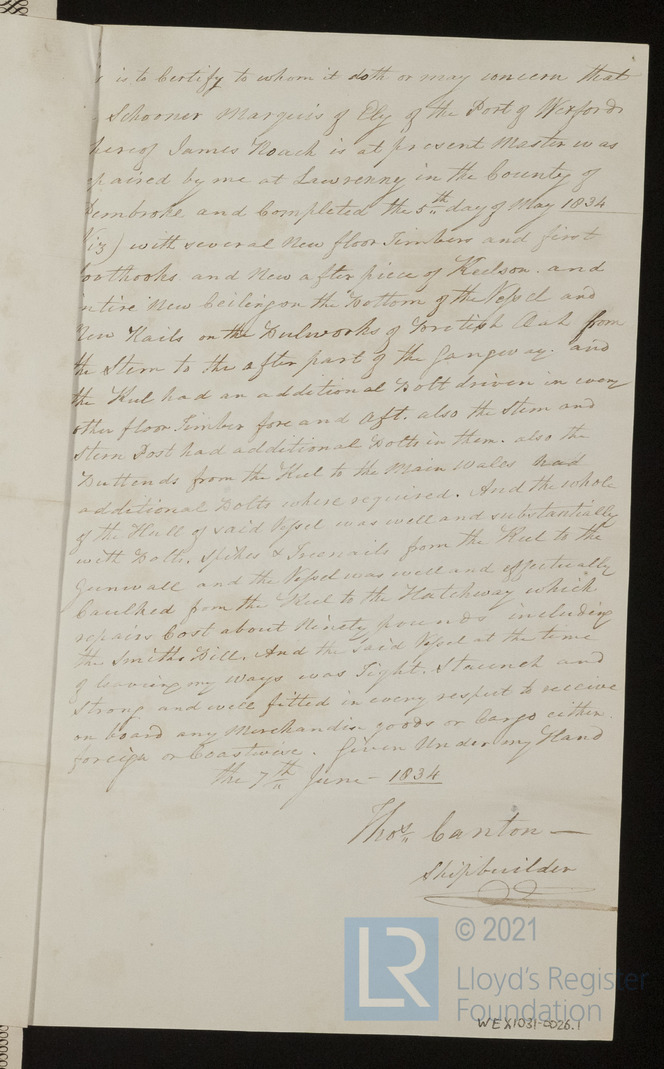 is to Certify to whom it doth or may concern that
Schooner Marquis of Ely of the Port of Wexford
hereof James Roach is at present Master was
paired by me at Lawrenny in the County of
Pembroke and Completed the 5th day of May 1834
Viz) with several New floor Timbers and first
oothooks and New after piece of Keelson. and
ntire New Ceileing on the Bottom of the Vessel and
New Rails on the Bulworks of British Oak from
the Stem to the after part of the Gangway. and
the Keel had an additional Bolt driven in every
other floor Timber fore and Aft. also the Stem and
Stern Post had additional Bolts in them. also the
Buttends from the Keel to the Main Wales had
additional Bolts where required. And the whole
of the Hull of said Vessel was well and substantially
with Bolts, Spikes & Treenails from the Keel to the
Gunwall and the Vessel was well and effectually
Caulked from the Keel to the Hatchway which
repairs Cost about Ninety pounds including
the Smiths Bill. And the Said Vessel at the time
of leaving my ways was Tight. Staunch and
Strong and well fitted in every respect to receive
on board any Merchandise goods or Cargo either
foreign or Coastwise. Given Under my Hand
the 7th June - 1834
Thos. Canton —
Shipbuilder
LR
© 2021
Lloyd's Register
Foundation
WEX1031-0026.1